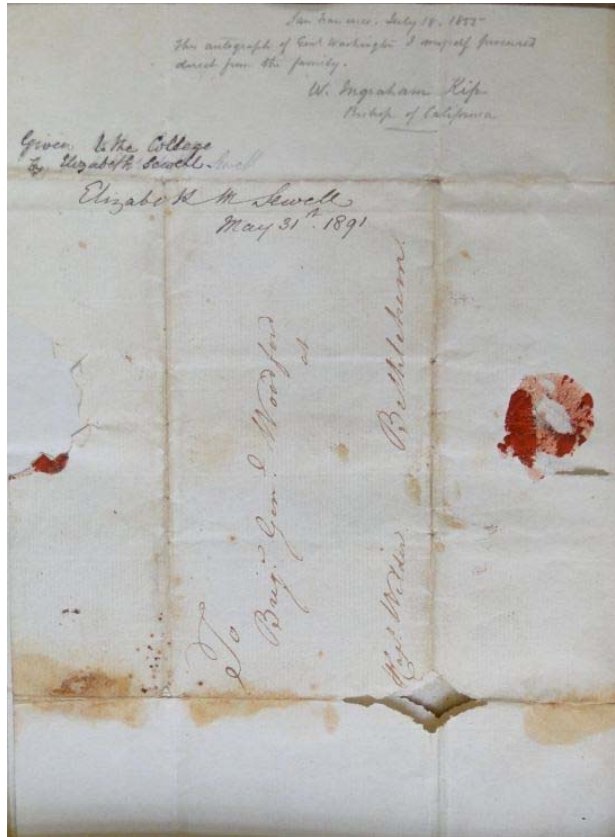 San Francisco. July 18. 1855
This autograph of Genl Washington I myself procured
direct from the family.
W. Ingraham Kip
Bishop of California
Given to the College
by Elizabeth Sewell. Sewell
Elizabeth M Sewell
May 31st. 1891
To
Brigr. Genl. Woodford
at
Bethlehem
Capt.